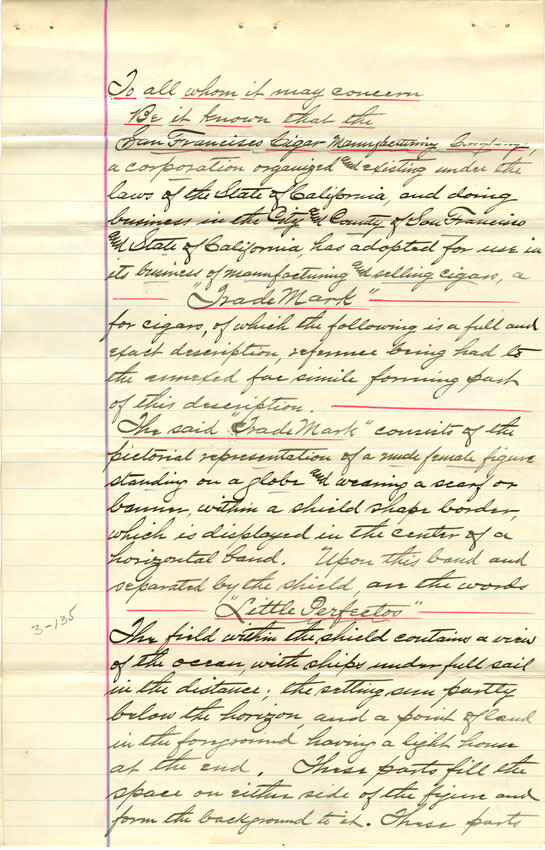 To all whom it may concern
Be it known that the
San Francisco Cigar Manufacturing Company,
a corporation organized and existing under the
laws of the State of California, and doing
business in the City and County of San Francisco
and State of California, has adopted for use in
its business of manufacturing and selling cigars, a
"Trade Mark"
for cigars, of which the following is a full and
exact description, reference being had to
the annexed fac simile forming part
of this description.
The said "Trade Mark" consists of the
pictorial representation of a nude female figure
standing on a globe and wearing a scarf or
banner, within a shield shape border,
which is displayed in the center of a
horizontal band. Upon this band and
separated by the shield, are the words
"Little Perfectos"
3-135
The field within the shield contains a view
of the ocean, with ships under full sail
in the distance; the setting sun partly
below the horizon, and a point of land
in the foreground having a light house
at the end. These parts fill the
space on either side of the figure and
form the background to it. These parts